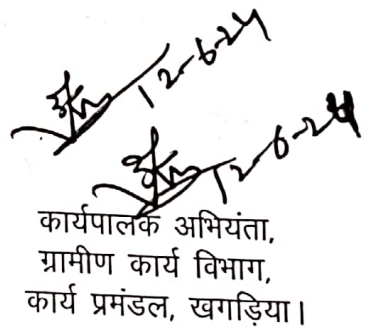 12-6-24
12-6-24
कार्यपालक अभियंता,
ग्रामीण कार्य विभाग,
कार्य प्रमंडल, खगड़िया।